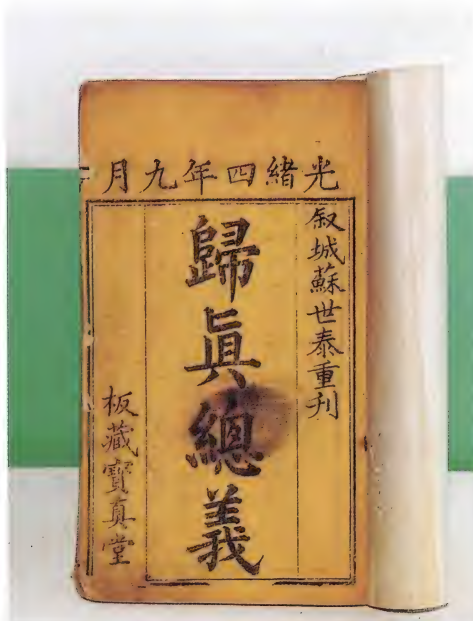 光緒四年九月
叙城蘇世泰重刋
歸真總義
板藏寶真堂